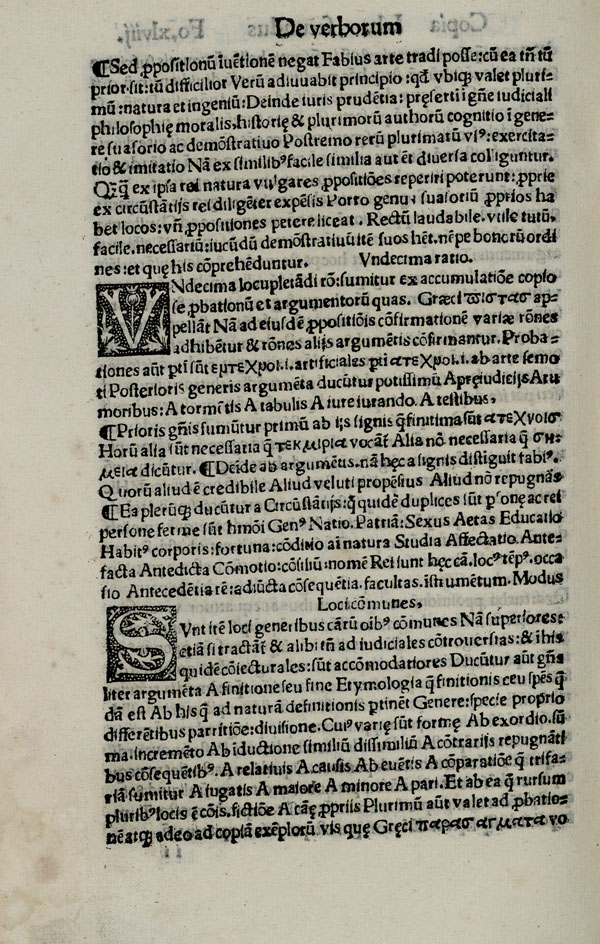 De verborum
¶Sed ꝓpositionū īuētionē negat Fabius arte tradi posse: cū ea tñ tū
prior. sit: tū difficilior Verū adiuuabit principio: qđ vbiqꝫ valet pluri-
mū: natura et ingeniū: Deinde iuris prudētia: pręserti ī gñe iudiciali
philosophię moralis, historię & plurimorū authorū cognitio ī gene-
re suasorio ac demōstratiuo Postremo rerū plurimarū vsꝰ: exercita-
tio & imitatio Nā ex similibꝰ facile similia aut ēt diuersa colliguntur.
Qꝫqꝫ ex ipsa rei natura vulgares ꝓpositiōes reperiri poterunt: ꝓprie
ex circūstātijs rei diligēter expēsis Porro genꝰ suasoriū ꝓprios ha
bet locos: vñ ꝓpositiones petere liceat. Rectū laudabile. vtile tutū,
facile. necessariū: iucūdū demōstratiuū itē suos hēt. nēpe bonorū ordi
nes: et quę his cōprehēduntur. Vndecima ratio.
VNdecima locupletādi rō: sumitur ex accumulatiōe copio
se ꝓbationū et argumentorū quas. Gręci πιστασ ap-
pellāt Nā ad eiusdē ꝓpositiōis cōfirmationē variæ rōnes
adhibētur & rōnes alijs argumētis cōfirmantur. Proba-
tiones aūt ꝑti sūt εητεχνοι. i. artificiales ꝑti ατεχνοι. i. ab arte semo
ti Posterioris generis argumēta ducūtur potissimū A pręiudicijs A ru
moribus: A tormētis A tabulis A iure iurando. A testibus,
¶Prioris gñis sumūtur primū ab ijs signis q̄ finitima sūt ατεχνοισ
Horū alia sūt necessaria q̄ τεκμιρια vocāt Alia nō necessaria q̄ ση-
μεια dicūtur. ¶Deīde ab argumētis. nā hęc a signis distīguit fabiꝰ.
Quorū aliud ē credibile Aliud veluti propēsius Aliud nō repugnās
¶Ea plerūqꝫ ducūtur a Circūstātijs: q̄ quidē duplices sūt ꝑsonę ac rei
persone ferme sūt hmōi Genꝰ Natio. Patriā: Sexus Aetas Educatio
Habitꝰ corporis: fortuna: cōditio aī natura Studia Affectatio. Ante-
facta Antedicta Cōmotio: cōsiliū: nomē Rei sunt hęc cā. locꝰ tēpꝰ. occa
sio Antecedētia rē: adiūcta cōsequētia. facultas. īstrumētum. Modus
Loci cōmunes,
SVnt itē loci generibus cārū oībꝰ cōmunes Nā superiores:
etiā si tractāt & alibi tñ ad iudiciales cōtrouersias: & ī his
quidē cōiecturales: sūt accōmodatiores Ducūtur aūt gña
liter argumēta A finitione seu fine Etymologia q̄ finitionis ceu spēs q̄
dā est Ab his q̄ ad naturā definitionis ꝑtinēt Genere: specie proprio
differētibus partitiōe: diuisione. Cuiꝰ varię sūt formę Ab exordio. sū
ma. incremēto Ab īductione similiū dissimiliū A cōtrarijs repugnāti
bus cōsequētibꝰ. A relatiuis A causis Ab euētis A cōparatiōe q̄ trifa-
riā sumitur A iugatis A maiore A minore A pari. Et ab ea q̄ rursum
pluribꝰ locis ē cōis. fictiōe A cāę ꝓprijs Plurimū aūt valet ad ꝓbatio-
nē atqꝫ adeo ad copiā exēplorū. vis quę Gręci παρασ αγματα vo